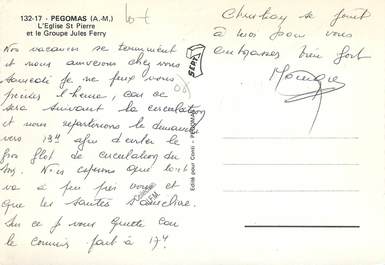 132-17 - PEGOMAS (A.-M.)
L'Eglise St Pierre
et le Groupe Jules Ferry
Nos vacances se terminent
et nous arriverons chez vous
samedi je ne peux vous
préciser l'heure, car ce
sera suivant la circulation
et nous repartirons le dimanche
vers 13H afin d'éviter le
gros flot de circulation du
soir. Nous espérons que tout
va à peu près pour vous et
que les santés s'améliore.
Sur ce je vous quitte car
le courrier part à 17H.
se joint
à moi pour vous
embrasser bien fort
Monique
SEPT
Edité par Conti - PEGOMAS